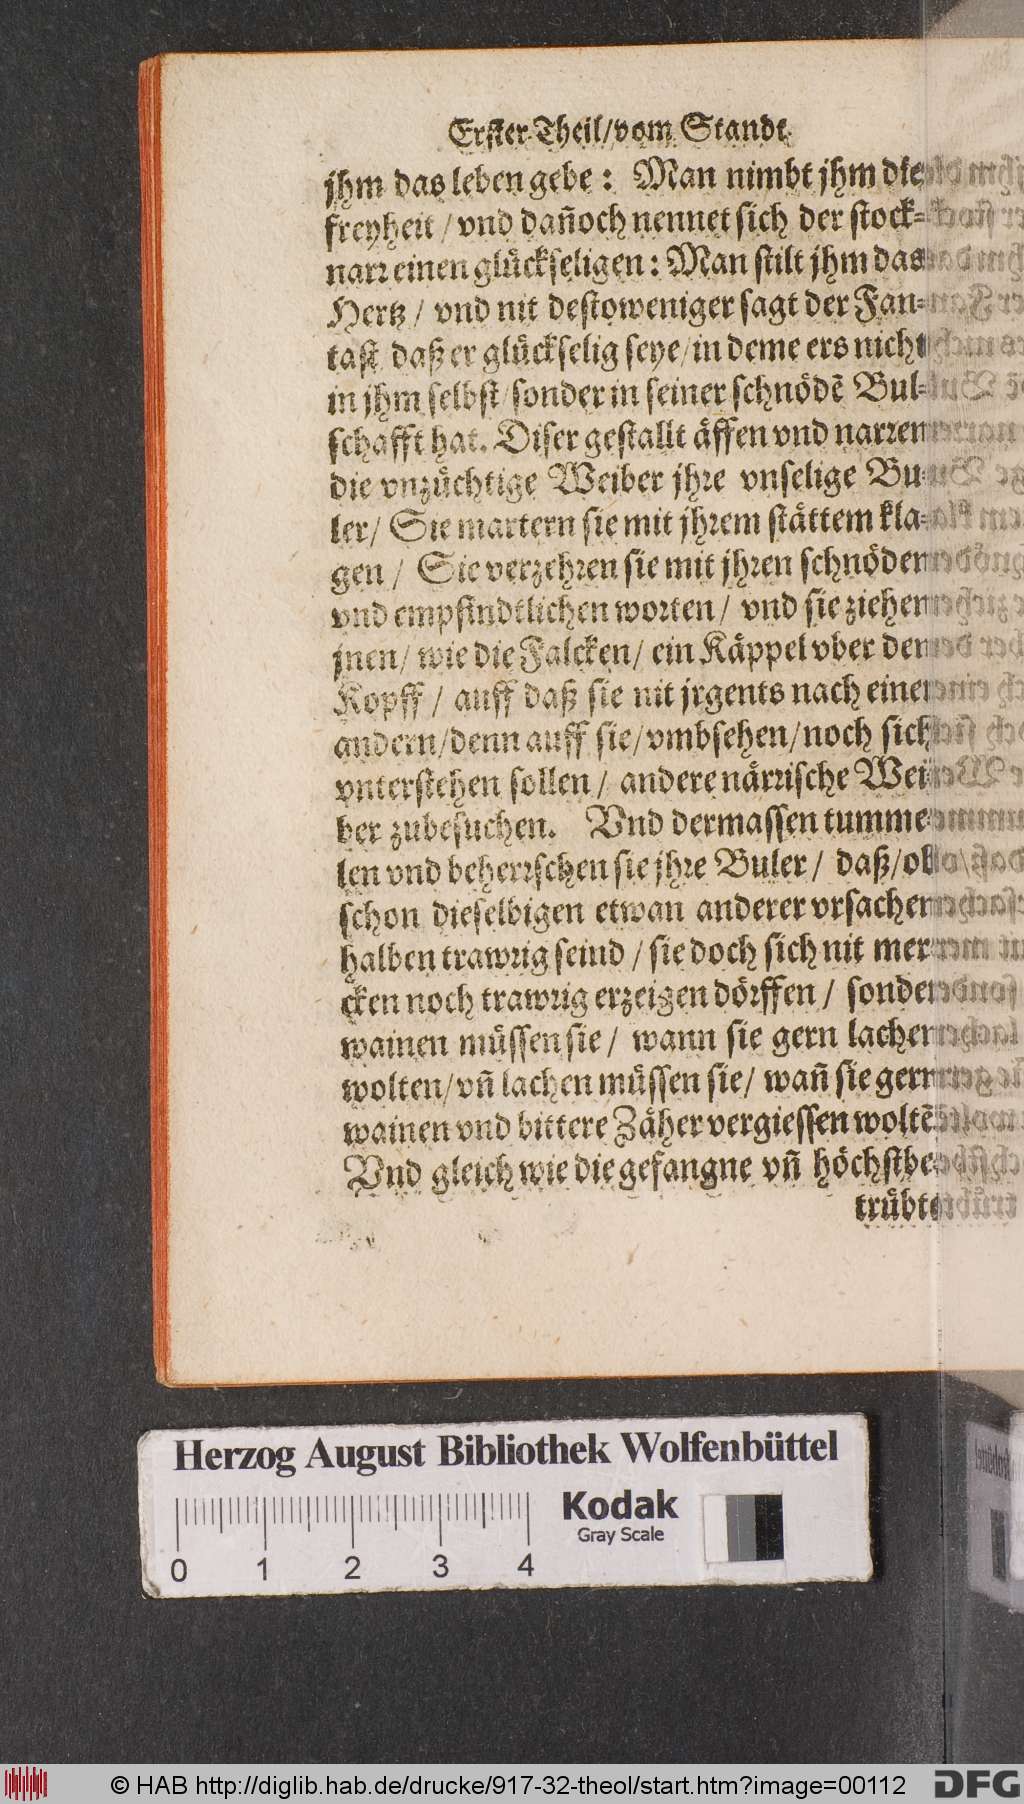 Erster Theil/vom Standt
jhm das leben gebe: Man nimbt jhm die
freyheit/vnd dañoch nennet sich der stock-
narr einen glückseligen: Man stilt jhm das
Hertz/ vnd nit destoweniger sagt der Fan-
tast daß er glückselig seye/in deme ers nicht
in jhm selbst/sonder in seiner schnödē Bul-
schafft hat. Diser gestallt äffen vnd narren
die vnzüchtige Weiber jhre vnselige Bu-
ler/ Sie martern sie mit jhrem stättem kla-
gen/ Sie verzehren sie mit jhren schnöden
vnd empfindtlichen worten/ vnd sie ziehen
jnen/ wie die Falcken/ ein Käppel vber den
Kopff/ auff daß sie nit jrgents nach einer
andern/denn auff sie/vmbsehen/noch sich
vnterstehen sollen/ andere närrische Wei
ber zubesuchen. Vnd dermassen tumme
len vnd beherrschen sie jhre Buler/ daß/ob
schon dieselbigen etwan anderer vrsachen
halben trawrig seind/sie doch sich nit mer
cken noch trawrig erzeigen dörffen/ sonder
wainen müssen sie/ wann sie gern lachen
wolten/vñ lachen müssen sie/ wañ sie gern
wainen vnd bittere Zäher vergiessen woltē
Vnd gleich wie die gefangne vñ höchstbe-
trübte
Herzog August Bibliothek Wolfenbüttel
Kodak
Gray Scale
0 1 2 3 4
© HAB http://diglib.hab.de/drucke/917-32-theol/start.htm?image=00112
DFG